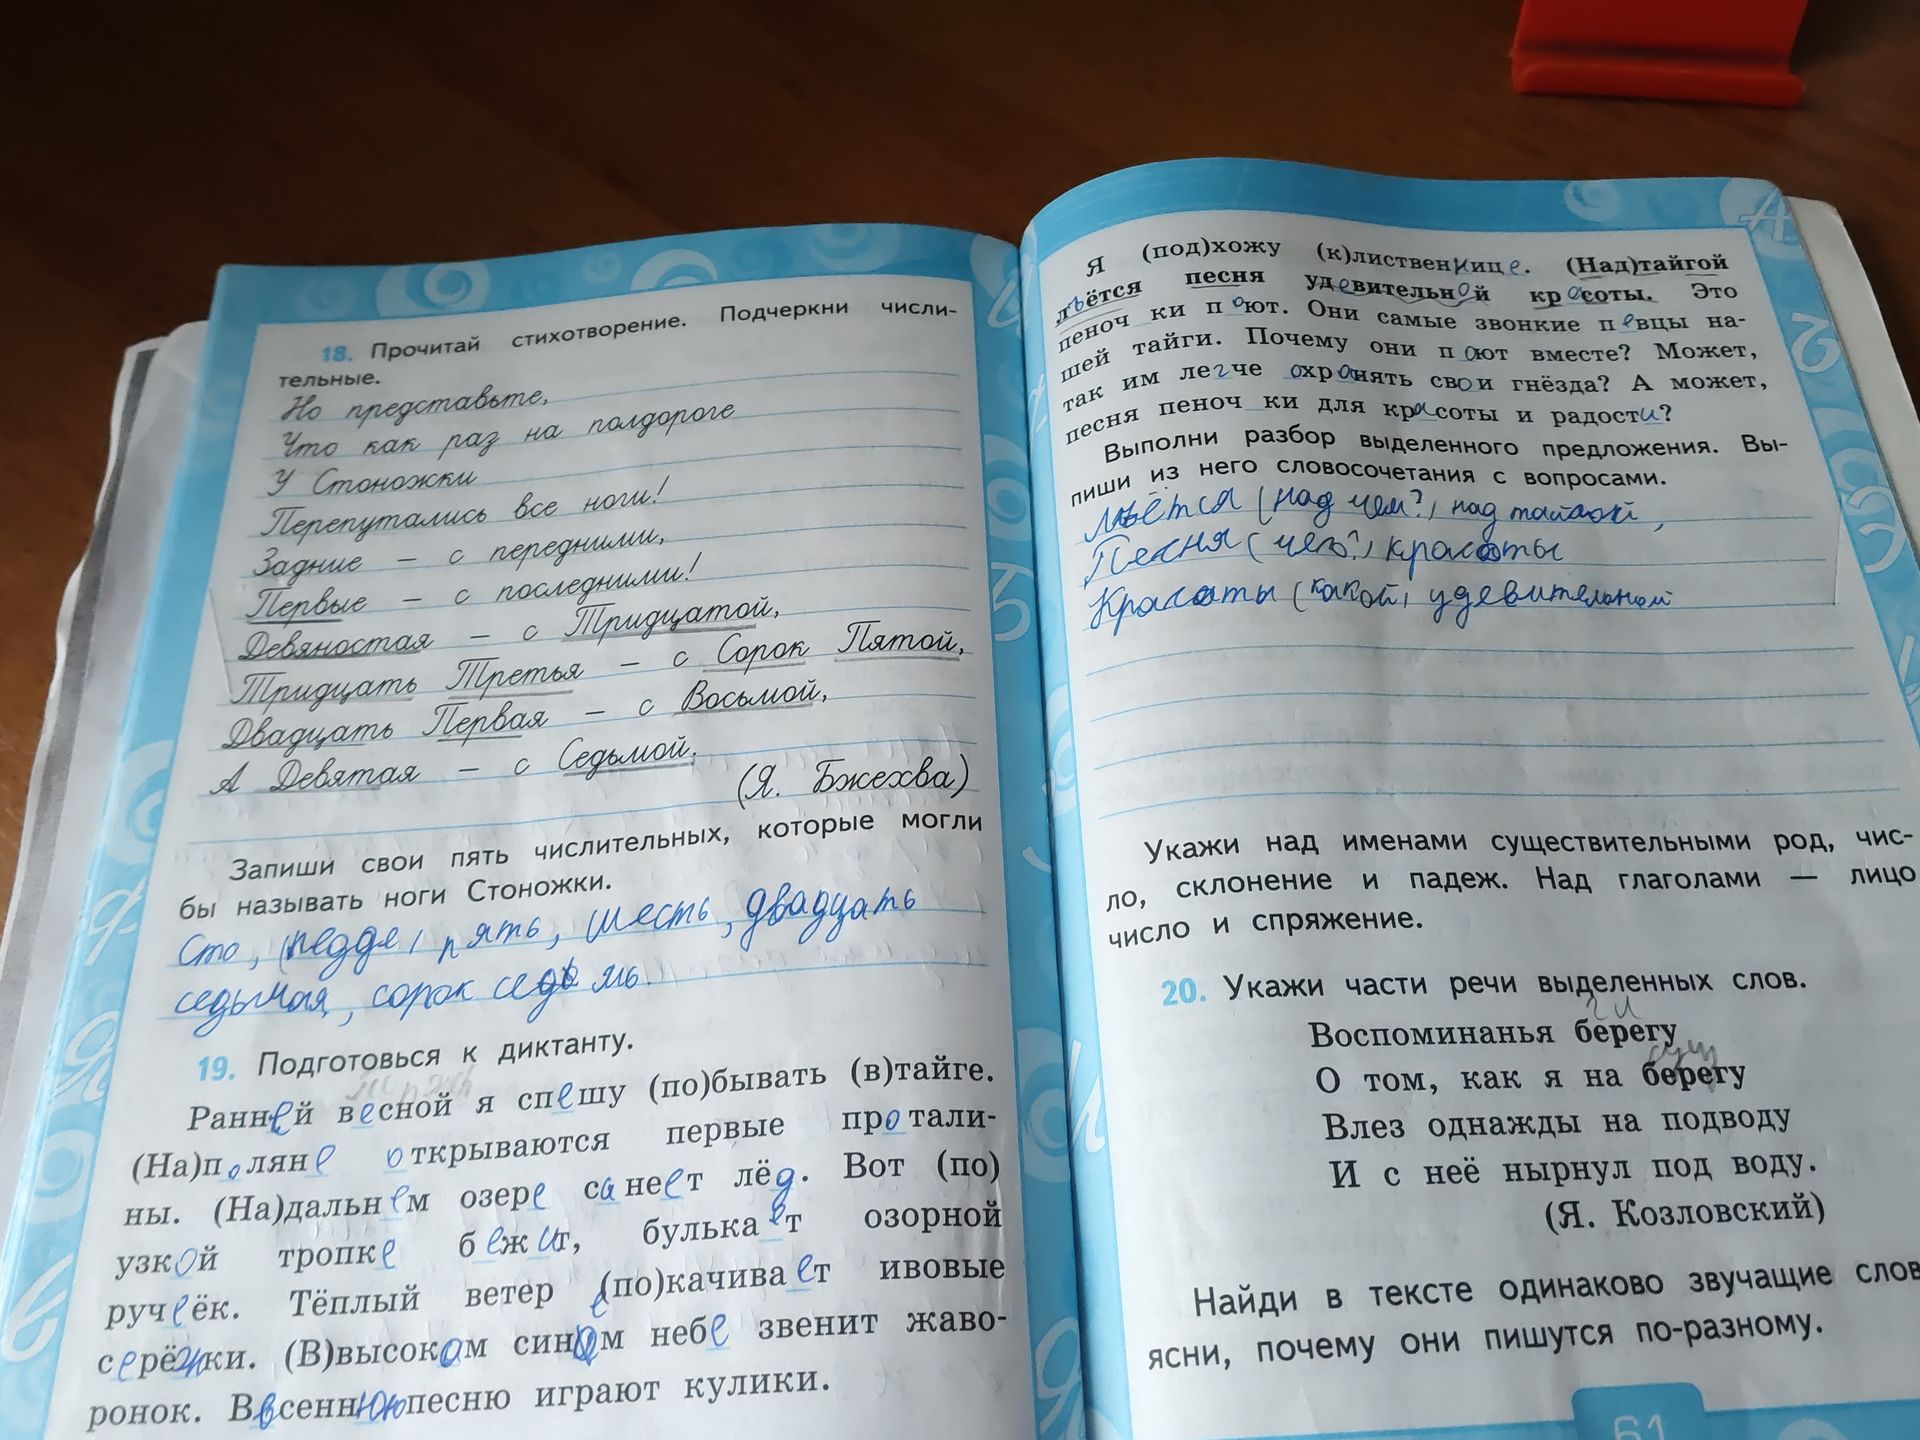 18. Прочитай стихотворение. Подчеркни числи-
тельные.
Но представьте,
Что как раз на полдороге
У Стоножки
Перепутались все ноги!
Задние – с передними,
Первые – с последними!
Девяностая – с Тридцатой,
Тридцать Третья – с Сорок Пятой,
Двадцать Первая – с Восьмой,
А Девятая – с Седьмой.
(Я. Бжехва)
Запиши свои пять числительных, которые могли
бы называть ноги Стоножки.
Сто, пять, шесть, двадцать
седьмая, сорок седьмь.
19. Подготовься к диктанту.
Ранней весной я спешу (по)бывать (в)тайге.
(На)поляне открываются первые протали-
ны. (На)дальнем озере санеет лёд. Вот (по)
узкой тропке бежит, булькает озорной
ручеёк. Тёплый ветер (по)качивает ивовые
серёжки. (В)высоком сином небе звенит жаво-
ронок. Ввсеннююпесню играют кулики.
Я (под)хожу (к)лиственнице. (Над)тайгой
льётся песня удевительной красоты. Это
пеноч ки поют. Они самые звонкие певцы на-
шей тайги. Почему они поют вместе? Может,
так им легче охронять свои гнёзда? А может,
песня пеноч ки для красоты и радости?
Выполни разбор выделенного предложения. Вы-
пиши из него словосочетания с вопросами.
льётся (над чем?) над тайгой,
Песня (чего?) красоты
Красоты (какой) удевительной
Укажи над именами существительными род, чис-
ло, склонение и падеж. Над глаголами — лицо
число и спряжение.
20. Укажи части речи выделенных слов.
гл
Воспоминанья берегу
сущ
О том, как я на берегу
Влез однажды на подводу
И с неё нырнул под воду.
(Я. Козловский)
Найди в тексте одинаково звучащие слов
ясни, почему они пишутся по-разному.
61